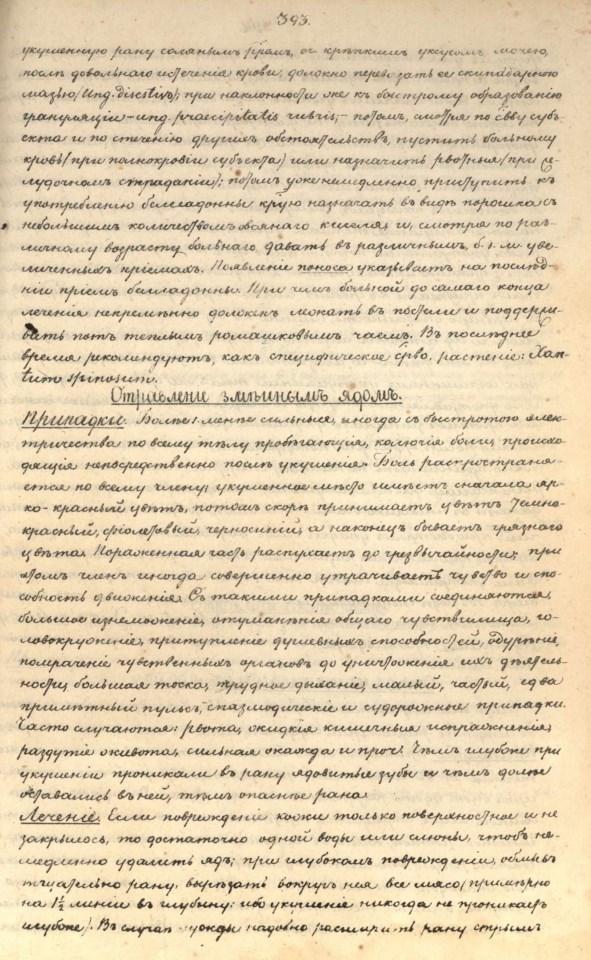 393.
укушенную рану солянымъ ромъ, ос крѣпкимъ уксусомъ мочею,
послѣ довольнаго истеченія крови, должно перевязать ее скипидарною
мазью (Ung. digestiv.); при наклонности же къ быстрому образованію
грануляціи – ung. praecipitatis rubris; – потомъ, смотря по св-ву субъ-
екта и по стеченію другихъ обстоятельствъ, пустить больному
кровь (при полнокровіи субъекта) или назначить рвотныя (при же-
лудочномъ страданіи); потомъ уже немедленно приступить къ
употребленію белладонны, крую назначать въ видѣ порошка съ
небольшимъ количествомъ и, смотря по раз-
личному возрасту больнаго, давать въ различныхъ, б. и. м. уве-
личенныхъ пріемахъ. Появленіе поноса указываетъ на послѣд-
ній пріемъ белладонны. При чемъ больной до самаго конца
леченія непремѣнно долженъ лежать въ постели и поддержи-
вать потъ теплымъ ромашковымъ чаемъ. Въ послѣднее
время рекомендуютъ, какъ специфическое срво, растеніе: Xan-
tium spinosum.
Отравленіе змѣинымъ ядомъ.
Припадки. Болѣе и. менѣе сильныя, иногда съ быстротою элек-
тричества по всему тѣлу пробѣгающія, колючія боли, происхо-
дящія непосредственно послѣ укушенія. Боль распространя-
ется по всему члену; укушенное мѣсто имѣетъ сначала яр-
ко-красный цвѣтъ, потомъ скоро принимаетъ цвѣтъ темно-
красный, фіолетовый, черносиній, а наконецъ бываетъ грязнаго
цвѣта. Пораженная часть распухаетъ до чрезвычайности; при
этомъ членъ иногда совершенно утрачиваетъ чувство и спо-
собность движенія. Съ такими припадками соединяются
большое изнеможеніе, отуманеніе общаго чувствилища, го-
ловокруженіе, притупленіе душевныхъ способностей, одурѣніе,
помраченіе чувственныхъ органовъ до уничтоженія ихъ дѣятель-
ности, большая тоска, трудное дыханіе, малый, частый, едва
примѣтный пульсъ, спазмодическіе и судорожные припадки.
Часто случаются: рвота, жидкія кишечныя испражненія,
раздутіе живота, сильная жажда и проч. Чѣмъ глубже при
укушеніи проникали въ рану ядовитые зубы и чѣмъ долѣе
оставались въ ней, тѣмъ опаснѣе рана.
Леченіе. Если поврежденіе кожи только поверхностное и не
закрылось, то достаточно одной воды или слюны, чтобъ не-
медленно удалить ядъ; при глубокомъ поврежденіи, обмывъ
тщательно рану, вырѣзать вокругъ нея все мясо (примѣрно
на 1½ линіи въ глубину: ибо укушеніе никогда не проникаетъ
глубже). Въ случаѣ нужды надобно расширить рану острымъ